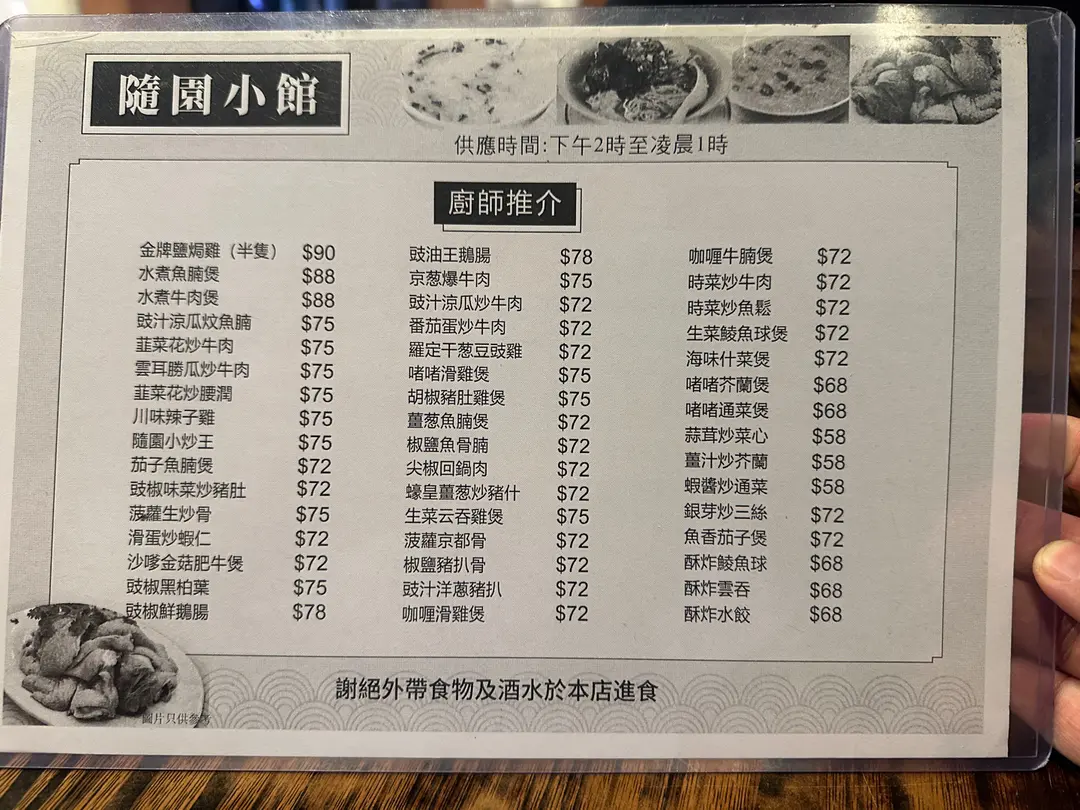 隨園小館
供應時間:下午2時至凌晨1時
廚師推介
金牌鹽焗雞（半隻） $90
水煮魚腩煲 $88
水煮牛肉煲 $88
豉汁涼瓜炆魚腩 $75
韮菜花炒牛肉 $75
雲耳勝瓜炒牛肉 $75
韮菜花炒腰潤 $75
川味辣子雞 $75
隨園小炒王 $75
茄子魚腩煲 $72
豉椒味菜炒豬肚 $72
菠蘿生炒骨 $75
滑蛋炒蝦仁 $72
沙嗲金菇肥牛煲 $72
豉椒黑柏葉 $75
豉椒鮮鵝腸 $78
豉油王鵝腸 $78
京葱爆牛肉 $75
豉汁涼瓜炒牛肉 $72
番茄蛋炒牛肉 $72
羅定干葱豆豉雞 $72
啫啫滑雞煲 $75
胡椒豬肚雞煲 $75
薑葱魚腩煲 $72
椒鹽魚骨腩 $72
尖椒回鍋肉 $72
蠔皇薑葱炒豬什 $72
生菜云吞雞煲 $75
菠蘿京都骨 $72
椒鹽豬扒骨 $72
豉汁洋蔥豬扒 $72
咖喱滑雞煲 $72
咖喱牛腩煲 $72
時菜炒牛肉 $72
時菜炒魚鬆 $72
生菜鯪魚球煲 $72
海味什菜煲 $72
啫啫芥蘭煲 $68
啫啫通菜煲 $68
蒜茸炒菜心 $58
薑汁炒芥蘭 $58
蝦醬炒通菜 $58
銀芽炒三絲 $72
魚香茄子煲 $72
酥炸鯪魚球 $68
酥炸雲吞 $68
酥炸水餃 $68
謝絕外帶食物及酒水於本店進食
圖片只供參考